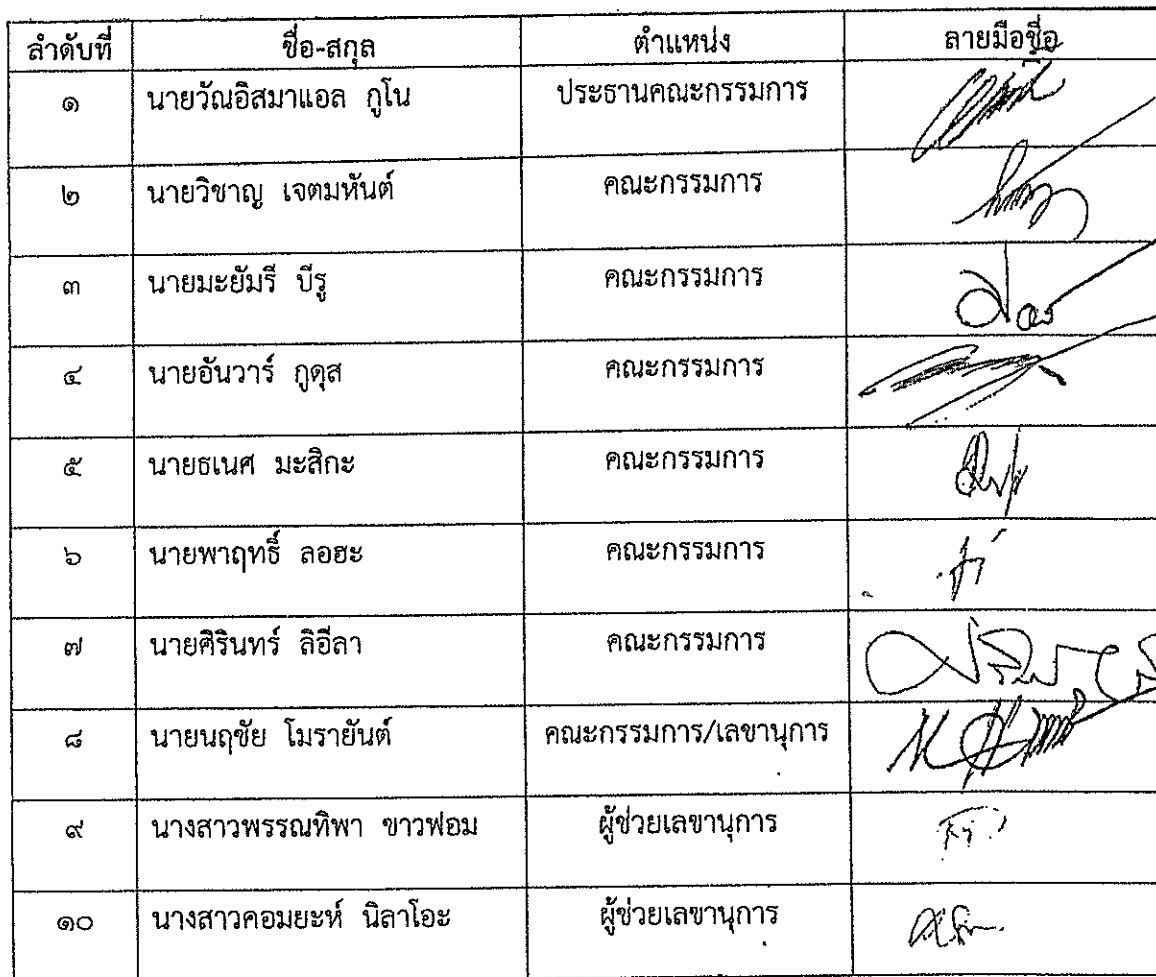 ลำดับที่ ชื่อ-สกุล ตำแหน่ง ลายมือชื่อ
๑ นายวัณอิสมาแอล กูโน ประธานคณะกรรมการ
๒ นายวิชาญ เจตมหันต์ คณะกรรมการ
๓ นายมะยัมรี บีรู คณะกรรมการ
๔ นายอันวาร์ กูดุส คณะกรรมการ
๕ นายธเนศ มะสิกะ คณะกรรมการ
๖ นายพาฤทธิ์ ลอฮะ คณะกรรมการ
๗ นายศิรินทร์ ลิอีลา คณะกรรมการ
๘ นายนฤชัย โมรายันต์ คณะกรรมการ/เลขานุการ
๙ นางสาวพรรณทิพา ขาวฟอม ผู้ช่วยเลขานุการ
๑๐ นางสาวคอมยะห์ นิลาโอะ ผู้ช่วยเลขานุการ